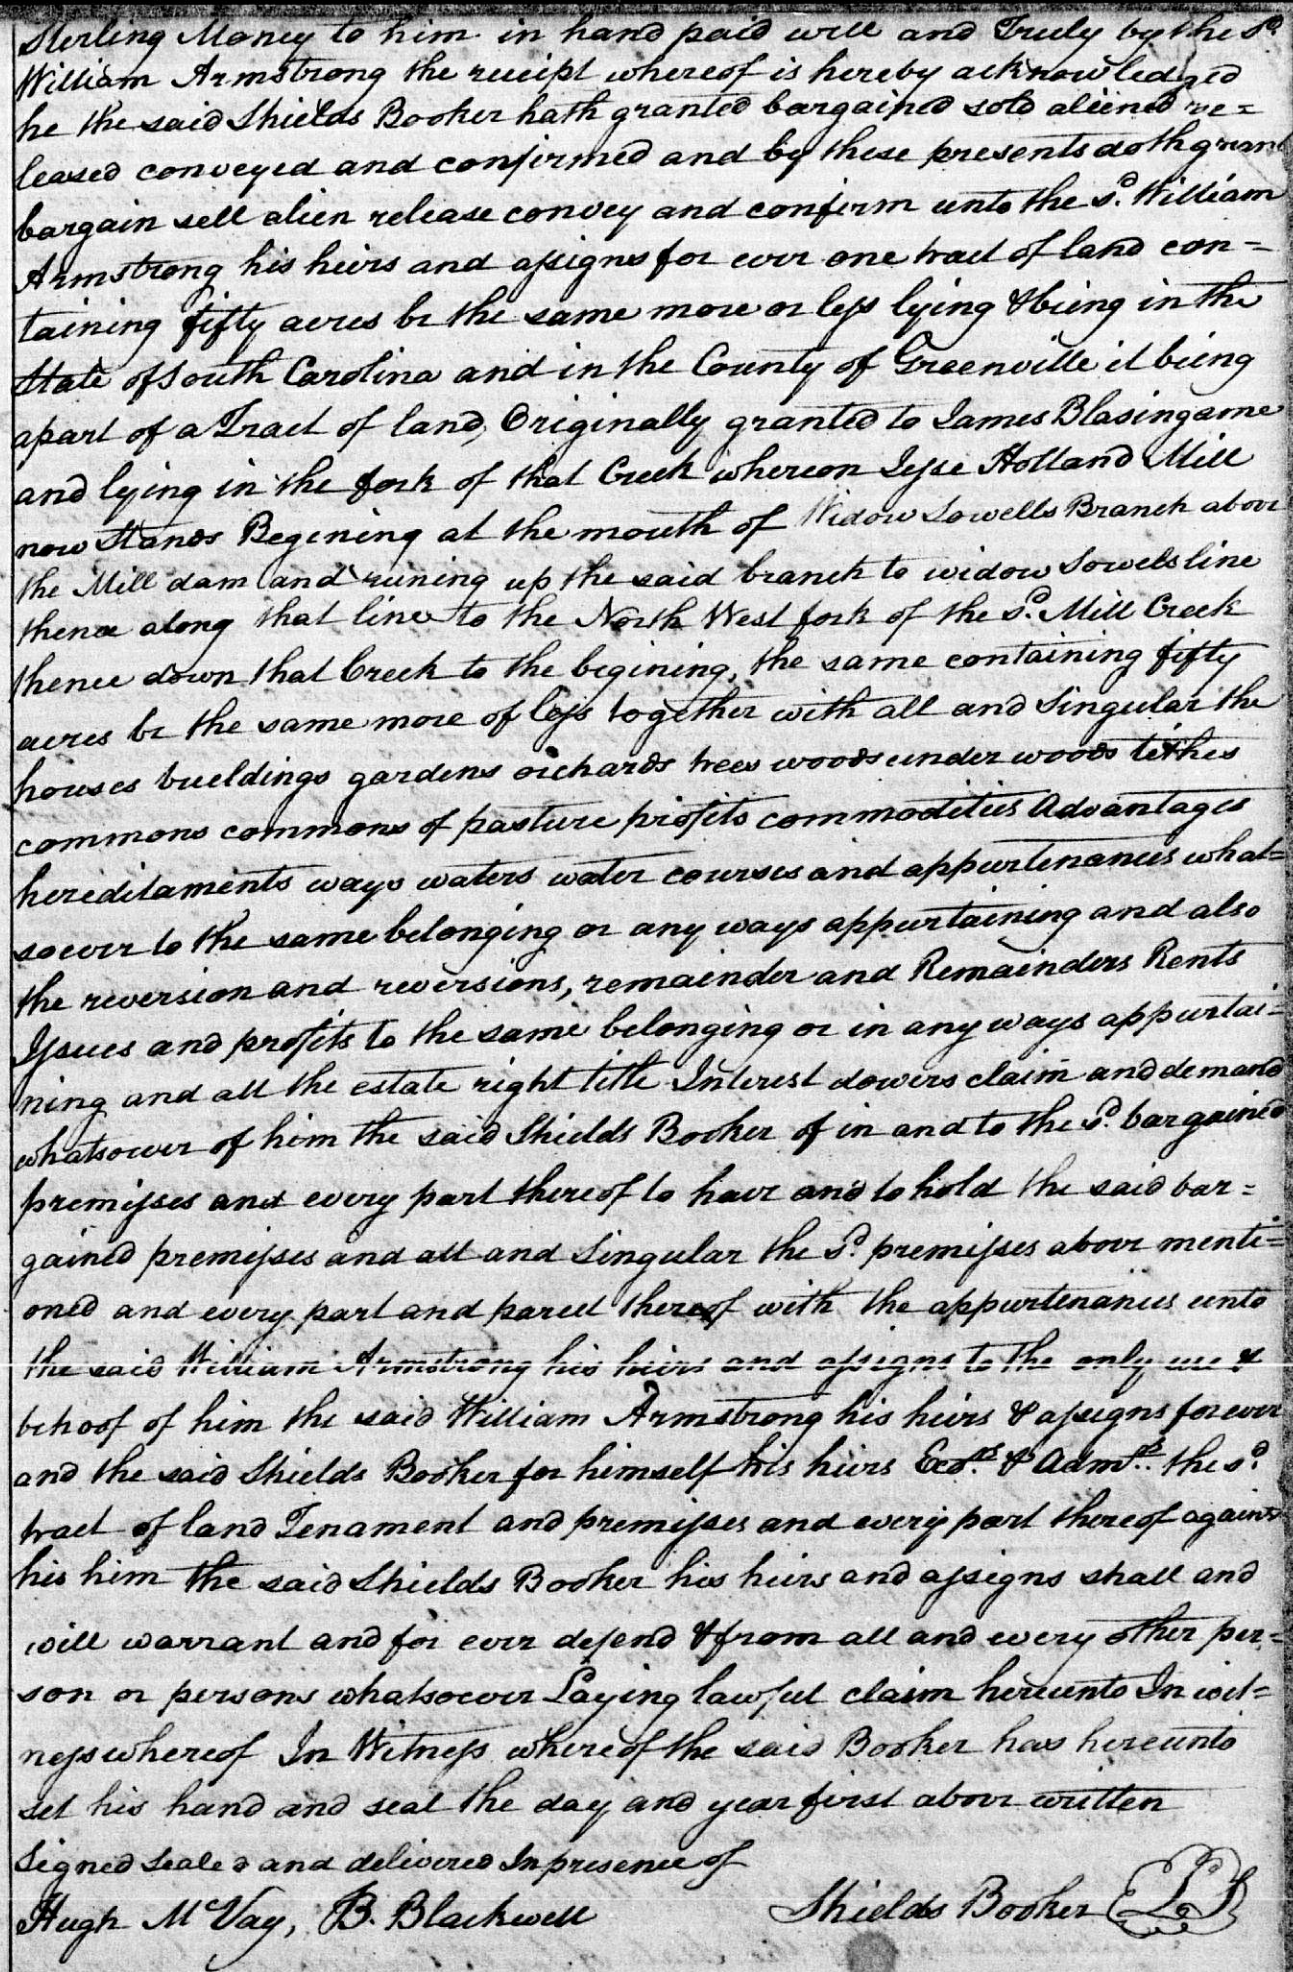 Sterling Money to him in hand paid well and Truly by the sd.
William Armstrong the receipt whereof is hereby acknowledged
he the said Shields Booker hath granted bargained sold aliened re=
leased conveyed and confirmed and by these presents doth grant
bargain sell alien release convey and confirm unto the sd. William
Armstrong his heirs and assigns for ever one tract of land con=
taining fifty acres be the same more or less lying & being in the
State of South Carolina and in the County of Greenville it being
apart of a Tract of land, Originally granted to James Blasingame
and lying in the fork of that Creek whereon Jesse Holland Mill
now Stands Begining at the mouth of Widow Sowells Branch above
the Mill dam and runing up the said branch to widow Sowels line
thence along that line to the North West fork of the sd. Mill Creek
thence down that Creek to the begining, the same containing fifty
acres be the same more of less together with all and Singular the
houses buildings gardens orchards trees woods under woods tithes
commons commons of pasture profits commodities Advantages
hereditaments ways waters water courses and appurtenances what=
soever to the same belonging or any ways appurtaining and also
the reversion and reversions, remainder and Remainders Rents
Issues and profits to the same belonging or in any ways appurtai=
ning and all the estate right title Interest dowers claim and demand
whatsoever of him the said Shields Booker of in and to the sd. bargained
premisses and every part thereof to have and to hold the said bar=
gained premisses and all and Singular the sd. premisses above menti=
oned and every part and parcel thereof with the appurtenances unto
the said William Armstrong his heirs and assigns to the only use &
behoof of him the said William Armstrong his heirs & assigns forever
and the said Shields Booker for himself his heirs Exors. & Admrs. the sd.
tract of land Tenament and premisses and every part thereof against
his him the said Shields Booker his heirs and assigns shall and
will warrant and for ever defend & from all and every other per=
son or persons whatsoever Laying lawful claim hereunto In wit=
ness whereof In Witness whereof the said Booker has hereunto
set his hand and seal the day and year first above written
Signed Sealed and delivered In presence of
Hugh McVay, B. Blackwell Shields Booker LS